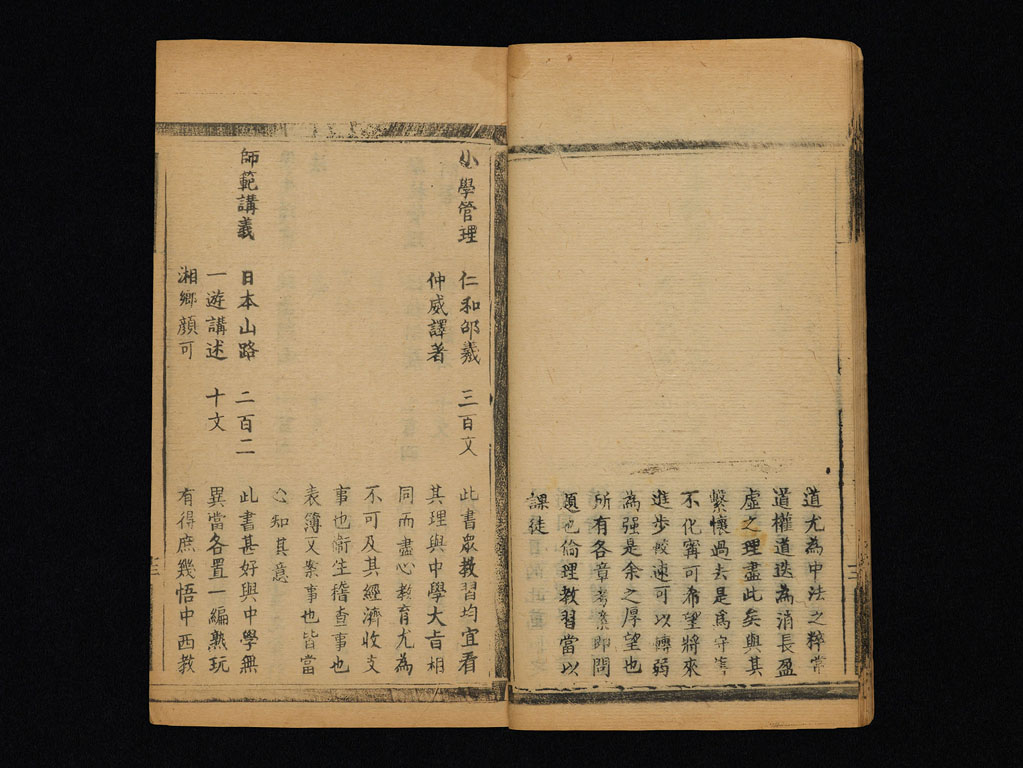 道尤為中法之粹常
道權道迭為消長盈
虛之理盡此矣與其
繫懷過去是為守舊
不化寧可希望將來
進步較速可以轉弱
為强是余之厚望也
所有各章考業即問
題也倫理教習當以
課徒
小學管理 仁和邵羲 三百文 此書眾教習均宜看
仲威譯著 其理與中學大旨相
同而盡心教育尤為
不可及其經濟收支
事也衞生稽查事也
表簿文案事也皆當
心知其意
師範講義 日本山路 二百二 此書甚好與中學無
一遊講述 十文 異當各置一編熟玩
湘鄉顏可 有得庶幾悟中西教